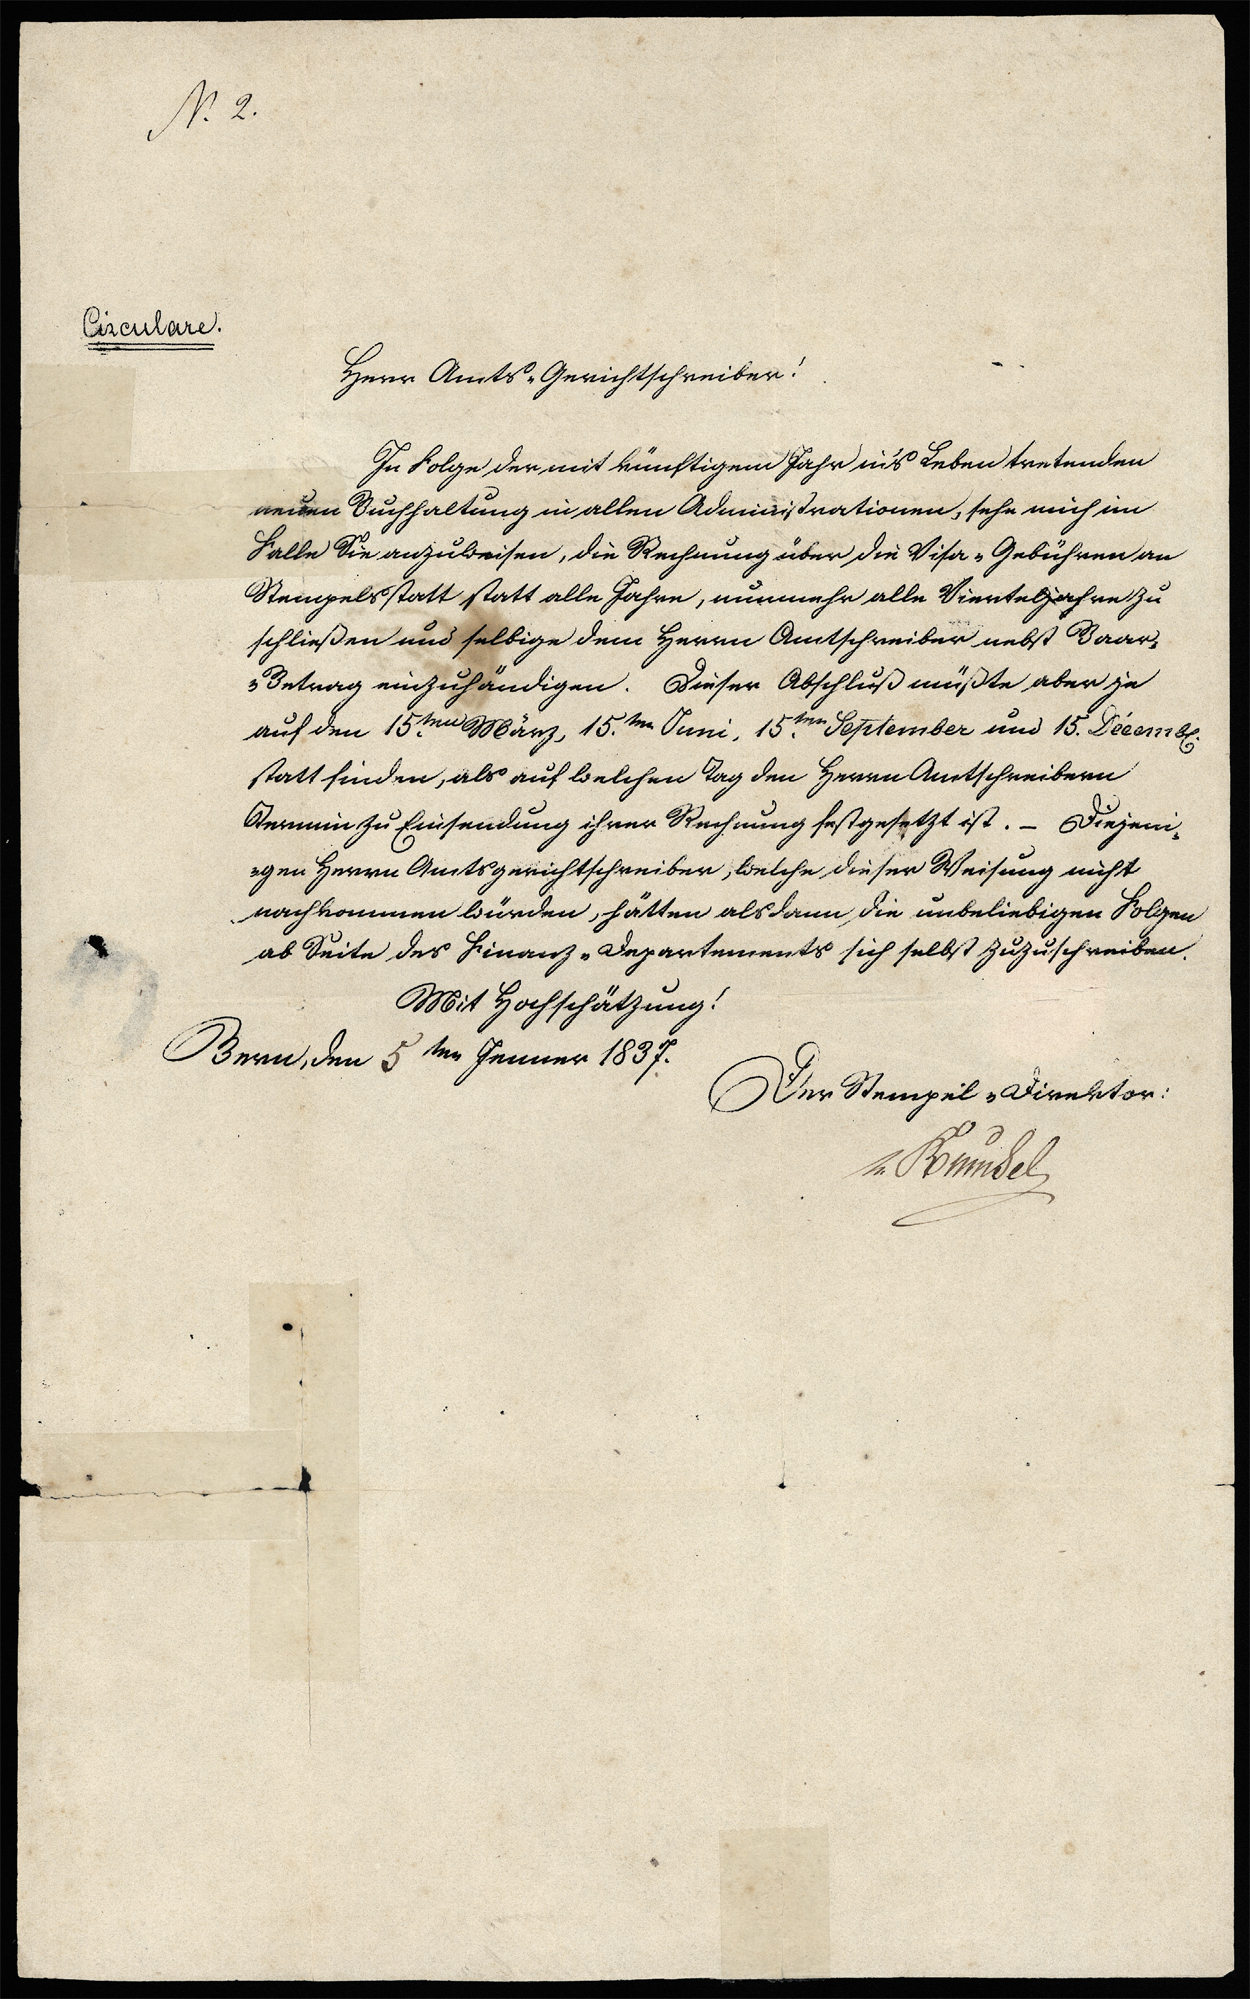 N. 2.
Circulare.
Herr Amts-Gerichtschreiber!
In Folge der mit künftigem Jahr in's Leben tretenden
neuen Buchhaltung in allen Administrationen, sehe mich im
Falle Sie anzuweisen, die Rechnung über die Visa-Gebühren an
Stempelsstatt statt alle Jahre, nunmehr alle Vierteljahre zu
schließen und selbige dem Herrn Amtschreiber nebst Baar-
-Betrag einzuhändigen. Dieser Abschluß müßte aber je
auf den 15.ten März, 15.ten Juni, 15.ten September und 15. Décembr.
statt finden, als auf welchen Tag den Herrn Amtschreibern
Termin zu Einsendung ihrer Rechnung festgesetzt ist. – Diejeni-
-gen Herrn Amtsgerichtschreiber, welche dieser Weisung nicht
nachkommen würden, hätten alsdann die unbeliebigen Folgen
ab Seite des Finanz-Departements sich selbst zuzuschreiben.
Mit Hochschätzung!
Bern, den 5ten Jenner 1837.
Der Stempel-Direktor: